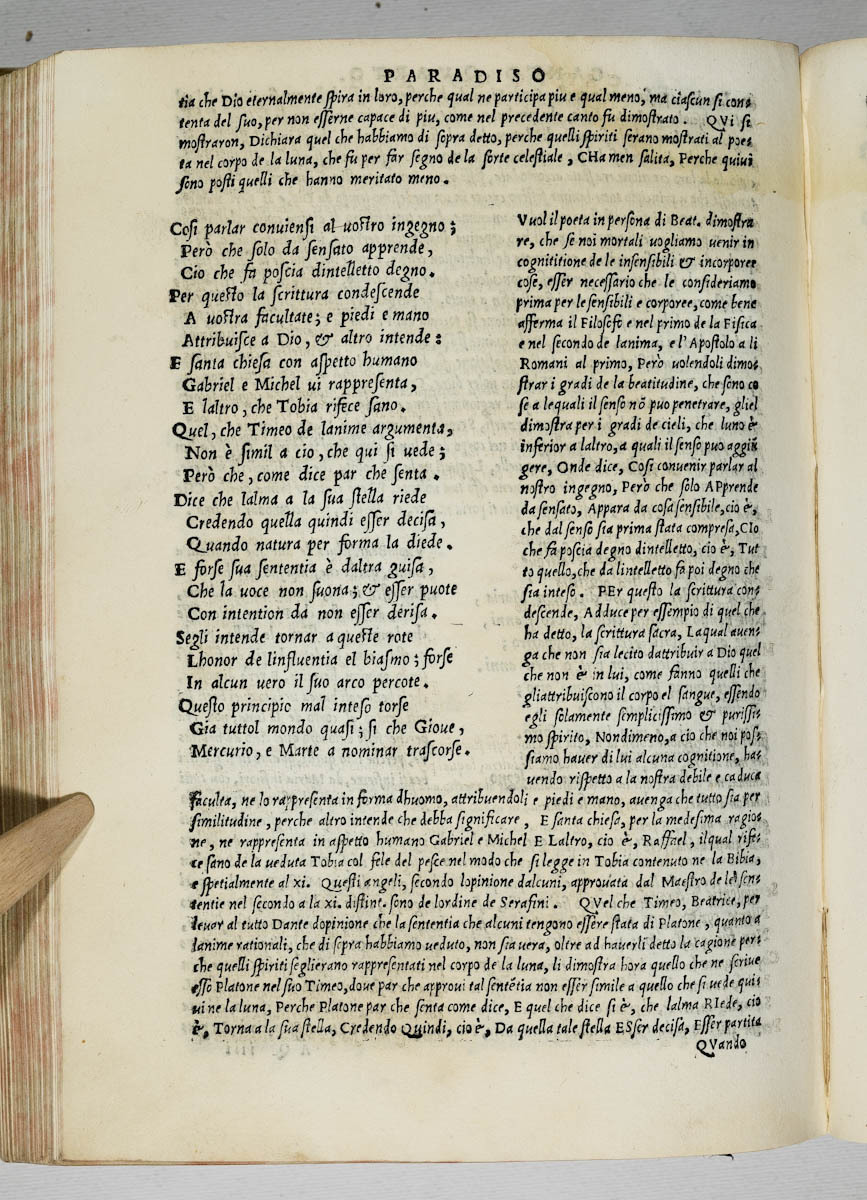 PARADISO
tia che Dio eternalmente spira in loro, perche qual ne participa piu e qual meno, ma ciascun si con-
tenta del suo, per non esserne capace di piu, come nel precedente canto fu dimostrato. QVi si
mostraron, Dichiara quel che habbiamo di sopra detto, perche quelli spiriti serano mostrati al poe-
ta nel corpo de la luna, che fu per far segno de la sorte celestiale, CHa men salita, Perche quiui
sono posti quelli che hanno meritato meno.
Cosi parlar conuiensi al uostro ingegno;
Però che solo da sensato apprende,
Cio che fa poscia dintelletto degno.
Per questo la scrittura condescende
A uostra facultate; e piedi e mano
Attribuisce a Dio, & altro intende:
E santa chiesa con aspetto humano
Gabriel e Michel ui rappresenta,
E laltro, che Tobia rifece sano.
Quel, che Timeo de lanime argumenta,
Non è simil a cio, che qui si uede;
Però che, come dice par che senta.
Dice che lalma a la sua stella riede
Credendo quella quindi esser decisa,
Quando natura per forma la diede.
E forse sua sententia è daltra guisa,
Che la uoce non suona; & esser puote
Con intention da non esser derisa.
Segli intende tornar a queste rote
Lhonor de linfluentia el biasmo; forse
In alcun uero il suo arco percote.
Questo principio mal inteso torse
Gia tuttol mondo quasi; si che Gioue,
Mercurio, e Marte a nominar trascorse.
Vuol il poeta in persona di Beat. dimostra
re, che se noi mortali uogliamo uenir in
cognititione de le insensibili & incorporee
cose, esser necessario che le consideriamo
prima per le sensibili e corporee, come bene
afferma il Filosofo e nel primo de la Fisica
e nel secondo de lanima, e l'Apostolo a li
Romani al primo, Però uolendoli dimo-
strar i gradi de la beatitudine, che sono co
se a lequali il senso nõ puo penetrare, gliel
dimostra per i gradi de cieli, che luno è
inferior a laltro, a quali il senso puo aggiũ
gere, Onde dice, Cosi conuenir parlar al
nostro ingegno, Però che solo APprende
da sensato, Appara da cosa sensibile, cio è,
che dal senso sia prima stata compresa, CIo
che fa poscia degno dintelletto, cio è, Tut
to quello, che da lintelletto fa poi degno che
sia inteso. PEr questo la scrittura con-
descende, Adduce per essempio di quel che
ha detto, la scrittura sacra, Laqual auen-
ga che non sia lecito dattribuir a Dio quel
che non è in lui, come fanno quelli che
gliattribuiscono il corpo el sangue, essendo
egli solamente semplicissimo & purissi-
mo spirito, Nondimeno, a cio che noi pos-
siamo hauer di lui alcuna cognitione, ha-
uendo rispetto a la nostra debile e caduca
faculta, ne lo rappresenta in forma dhuomo, attribuendoli e piedi e mano, auenga che tutto sia per
similitudine, perche altro intende che debba significare, E santa chiesa, per la medesima ragio-
ne, ne rappresenta in aspetto humano Gabriel e Michel E Laltro, cio è, Raffael, ilqual rife-
ce sano de la ueduta Tobia col fele del pesce nel modo che si legge in Tobia contenuto ne la Bibia,
e spetialmente al xi. Questi angeli, secondo lopinione dalcuni, approuata dal Maestro de le sen-
tentie nel secondo a la xi. distint. sono de lordine de Serafini. QVel che Timeo, Beatrice, per
leuar al tutto Dante dopinione che la sententia che alcuni tengono essere stata di Platone, quanto a
lanime rationali, che di sopra habbiamo ueduto, non sia uera, oltre ad hauerli detto la cagione per-
che quelli spiriti seglierano rappresentati nel corpo de la luna, li dimostra hora quello che ne scriue
esso Platone nel suo Timeo, doue par che approui tal sentẽtia non esser simile a quello che si uede qui-
ui ne la luna, Perche Platone par che senta come dice, E quel che dice si è, che lalma RIede, cio
è, Torna a la sua stella, Credendo Quindi, cio è, Da quella tale stella ESser decisa, Esser partita
QVando